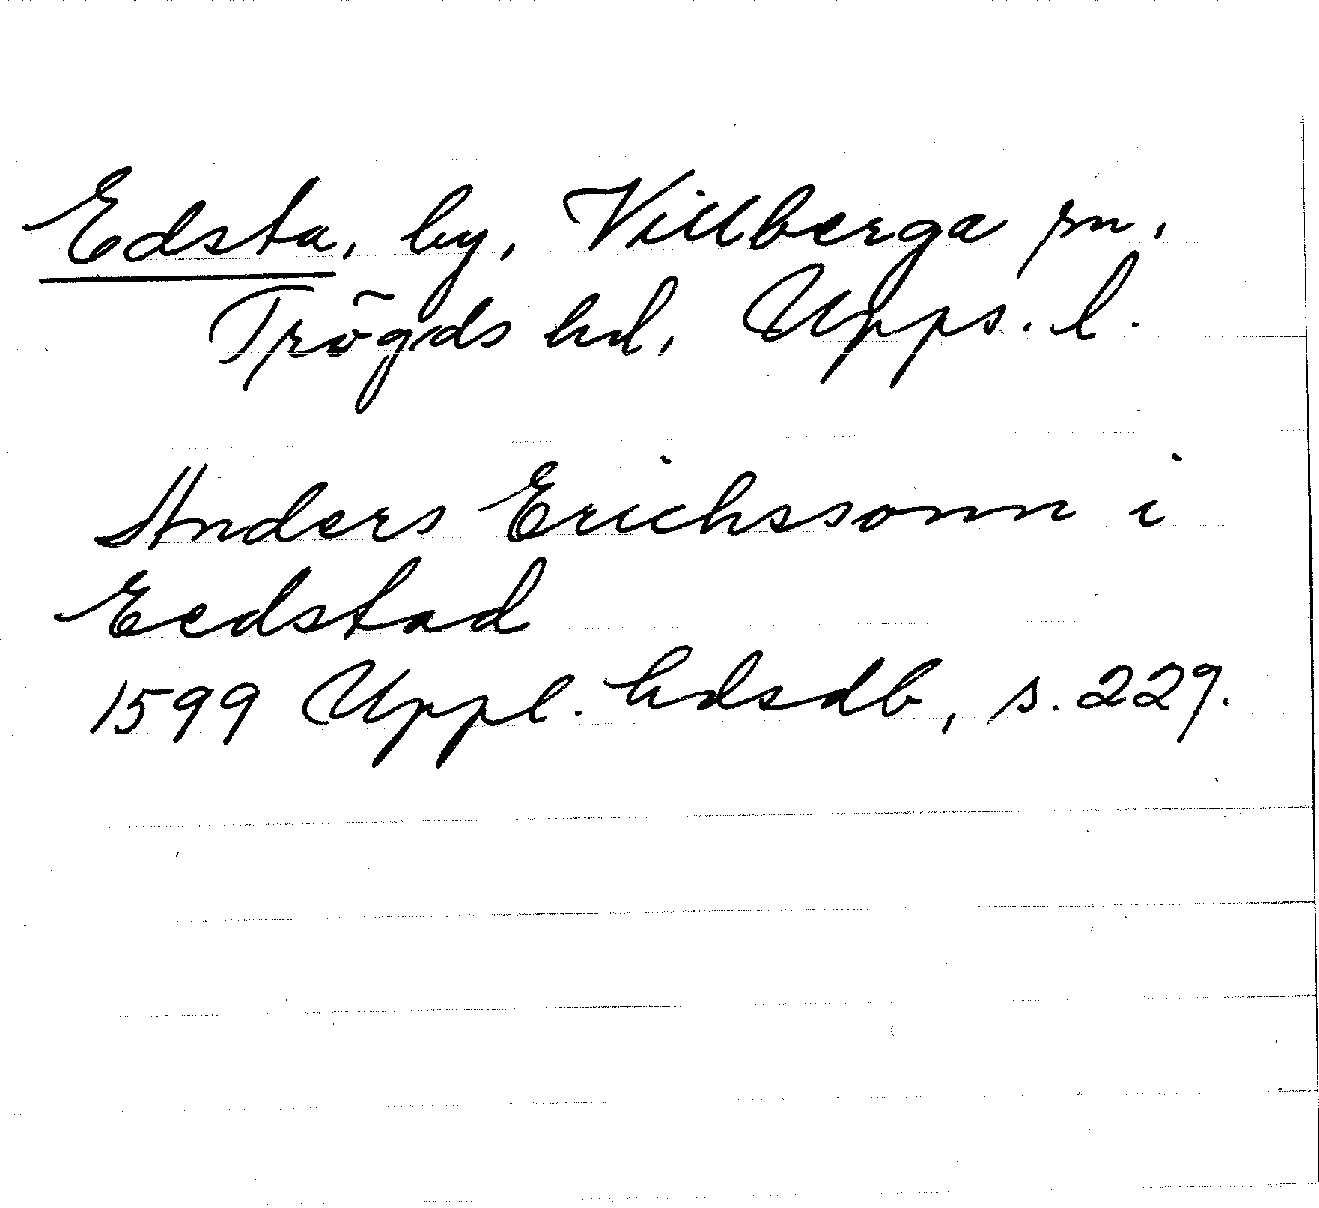 Edsta, by, Villberga sn,
Trögds hd, Upps. l.
Anders Erichssonn i
Eedstad
1599 Uppl. hdsdb, s. 229.